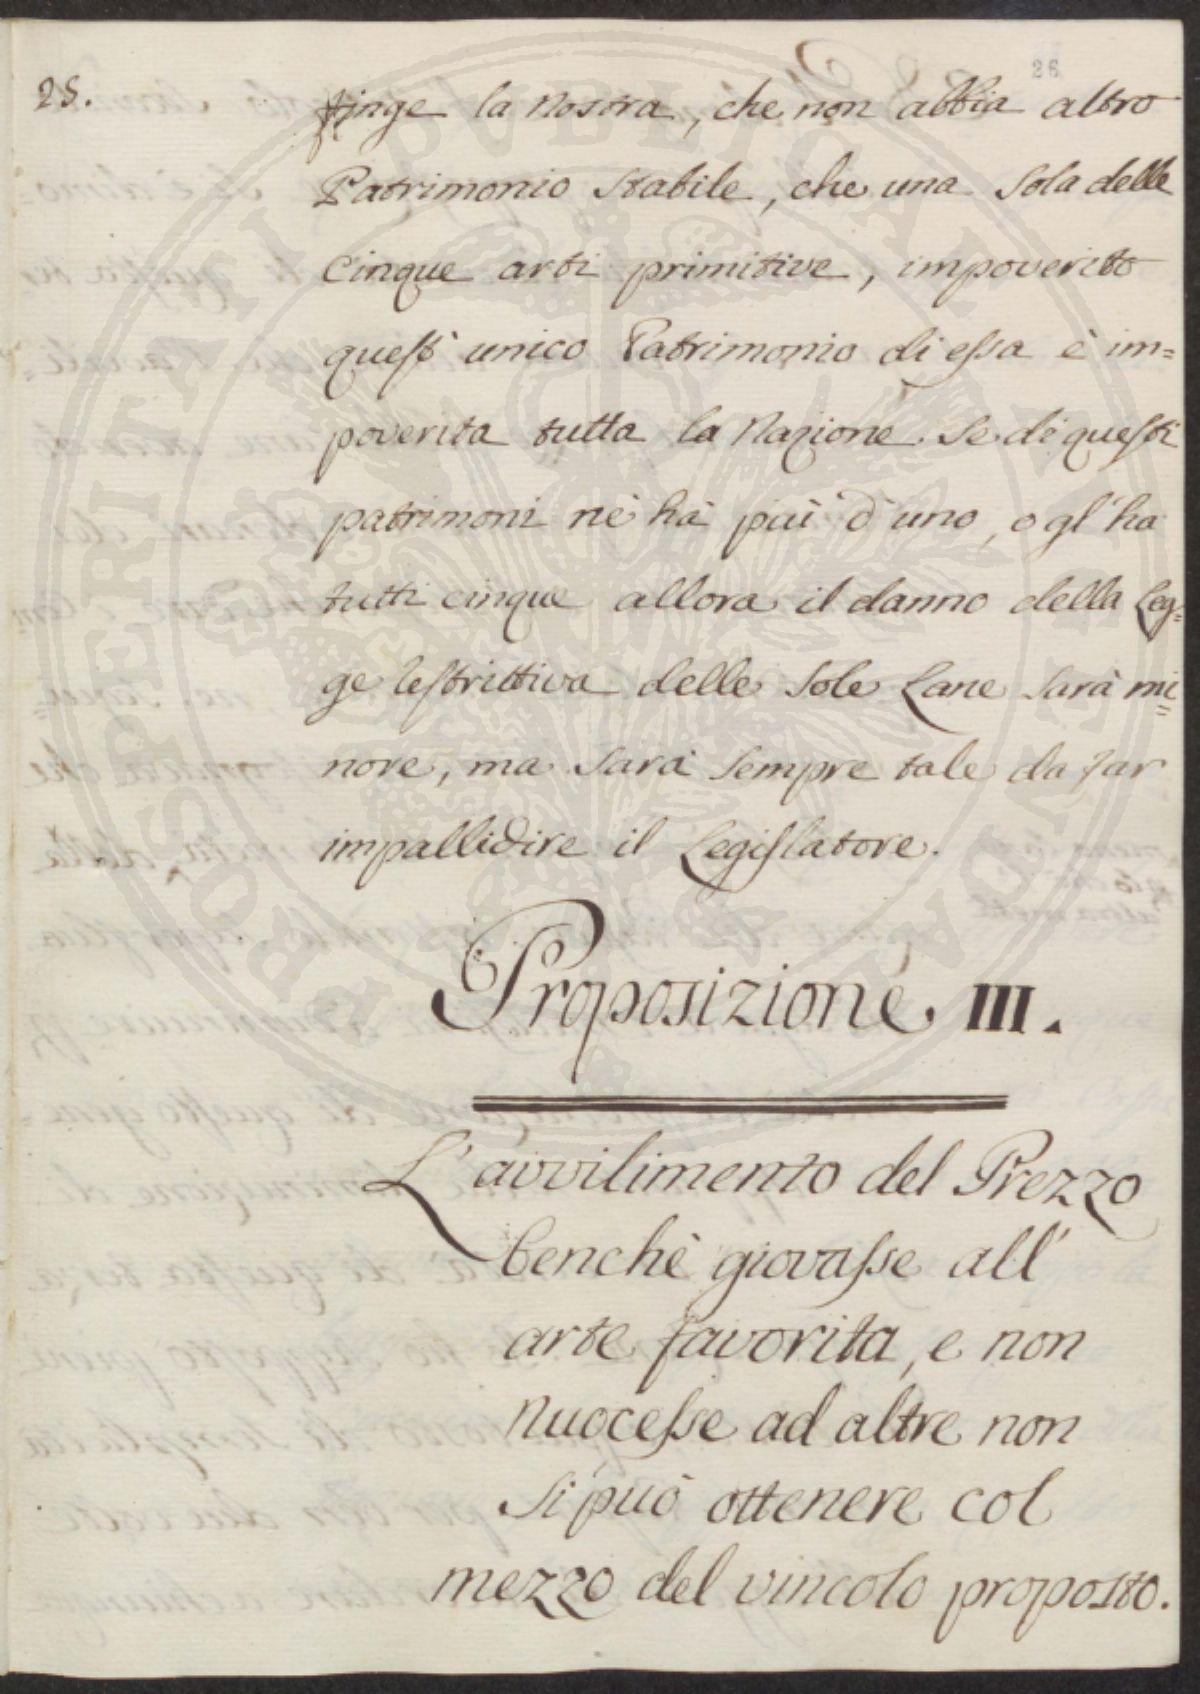 26
25.
finge la nostra, che non abbia altro
Patrimonio stabile, che una sola delle
cinque arti primitive, impoverito
quest' unico Patrimonio di essa è im=
poverita tutta la Nazione. Se di questi
patrimoni nè hà più d'uno, o gl'ha
tutti cinque allora il danno della Leg=
ge restrittiva delle sole Lane sarà mi=
nore, ma sarà sempre tale da far
impallidire il Legislatore.
Proposizione III.
L'avvilimento del Prezzo
benchè giovasse all'
arte favorita, e non
nuocesse ad altre non
si può ottenere col
mezzo del vincolo proposto.
PROSPERITATI PUBLICAE AUGENDAE